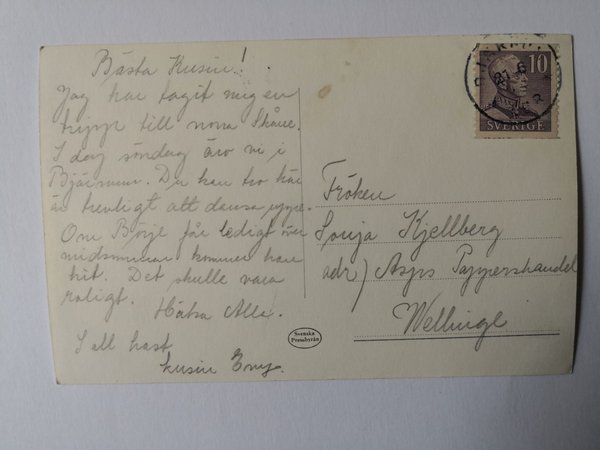 Bästa Kusin!
Jag har tagit mig en
tripp till norra Skåne.
I dag söndag äro vi i
Bjärnum. Du kan tro här
är trevligt att dansa uppe.
Om Börje får ledigt över
midsommar kommer han
hit. Det skulle vara
roligt. Hälsa Alla.
I all hast
kusin Emy.
Svenska
Pressbyrån
10
SVERIGE
Fröken
Sonja Kjellberg
adr) Asps Pappershandel
Wellinge